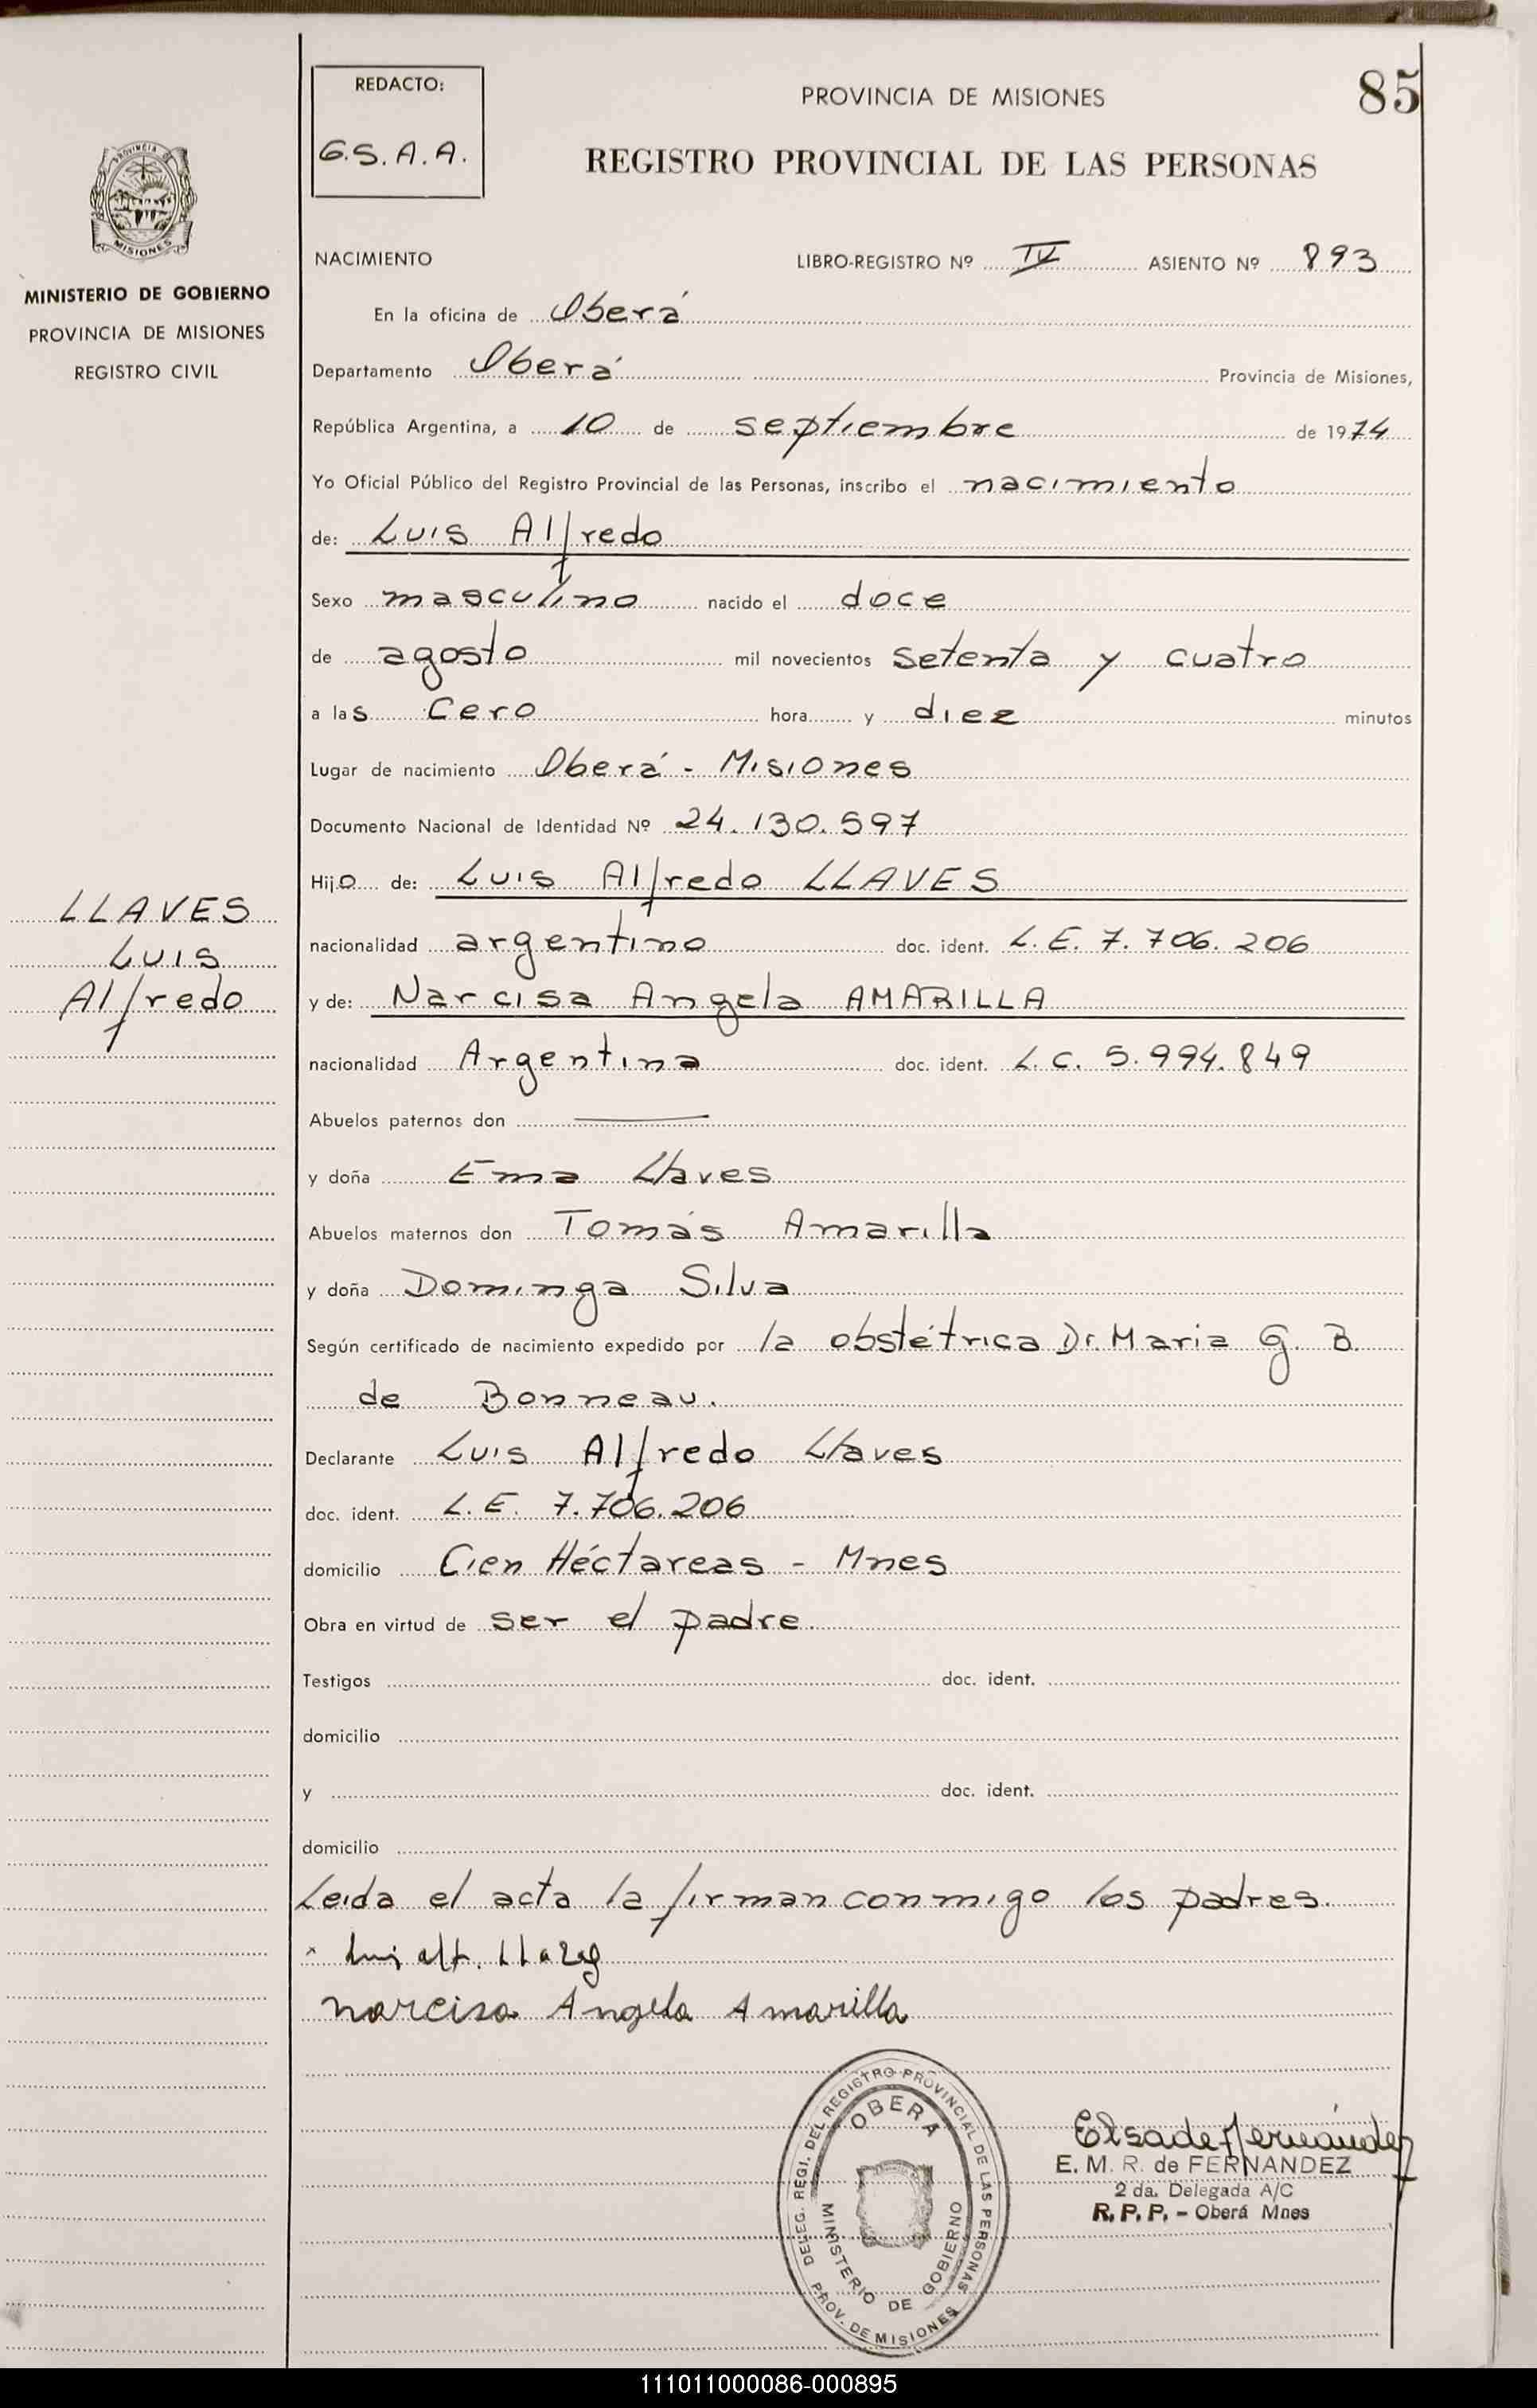 REDACTO:
G.S.A.A.
PROVINCIA DE MISIONES
85
REGISTRO PROVINCIAL DE LAS PERSONAS
PROVINCIA DE
MISIONES
MINISTERIO DE GOBIERNO
PROVINCIA DE MISIONES
REGISTRO CIVIL
NACIMIENTO LIBRO-REGISTRO Nº IV ASIENTO Nº 893
En la oficina de Oberá
Departamento Oberá Provincia de Misiones,
República Argentina, a 10 de septiembre de 1974
Yo Oficial Público del Registro Provincial de las Personas, inscribo el nacimiento
de: Luis Alfredo
Sexo masculino nacido el doce
de agosto mil novecientos setenta y cuatro
a las Cero hora y diez minutos
Lugar de nacimiento Oberá - Misiones
Documento Nacional de Identidad Nº 24.130.597
Hijo de: Luis Alfredo LLAVES
nacionalidad argentino doc. ident. L.E. 7.706.206
y de: Narcisa Angela AMARILLA
nacionalidad Argentina doc. ident. L.C. 5.994.849
LLAVES
LUIS
Alfredo
Abuelos paternos don
y doña Ema Llaves
Abuelos maternos don Tomás Amarilla
y doña Dominga Silva
Según certificado de nacimiento expedido por la obstétrica Dr. Maria G. B.
de Bonneau.
Declarante Luis Alfredo Llaves
doc. ident. L.E. 7.706.206
domicilio Cien Héctareas - Mnes
Obra en virtud de ser el padre.
Testigos doc. ident.
domicilio
y doc. ident.
domicilio
Leida el acta la firman conmigo los padres.
Narcisa Angela Amarilla
DELEG. REGI. DEL REGISTRO PROVINCIAL DE LAS PERSONAS
OBERA
MINISTERIO DE GOBIERNO
PROV. DE MISIONES
Elsa de Fernández
E. M. R. de FERNANDEZ
2 da. Delegada A/C
R. P. P. - Oberá Mnes
111011000086-000895